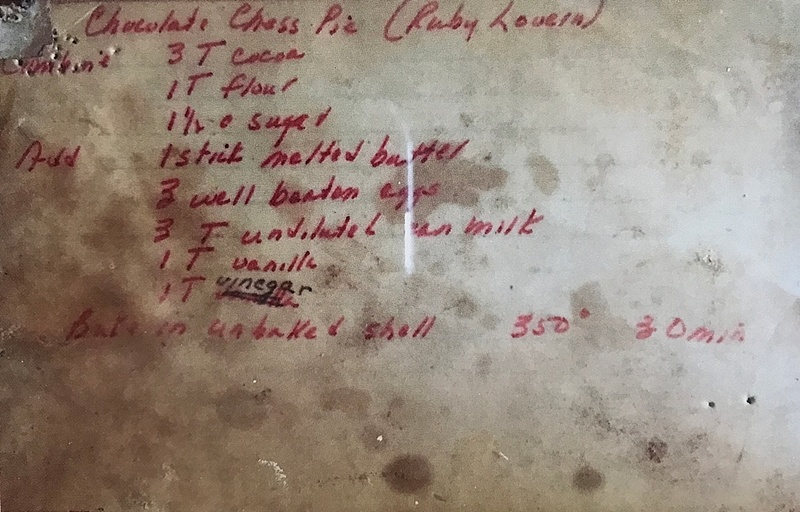 Chocolate Chess Pie (Ruby Lovern)
Combine 3 T cocoa
1 T flour
1 1/2 c sugar
Add 1 stick melted butter
3 well beaten eggs
3 T undiluted can milk
1 T vanilla
1 T vinegar
Bake in unbaked shell 350° 30 min